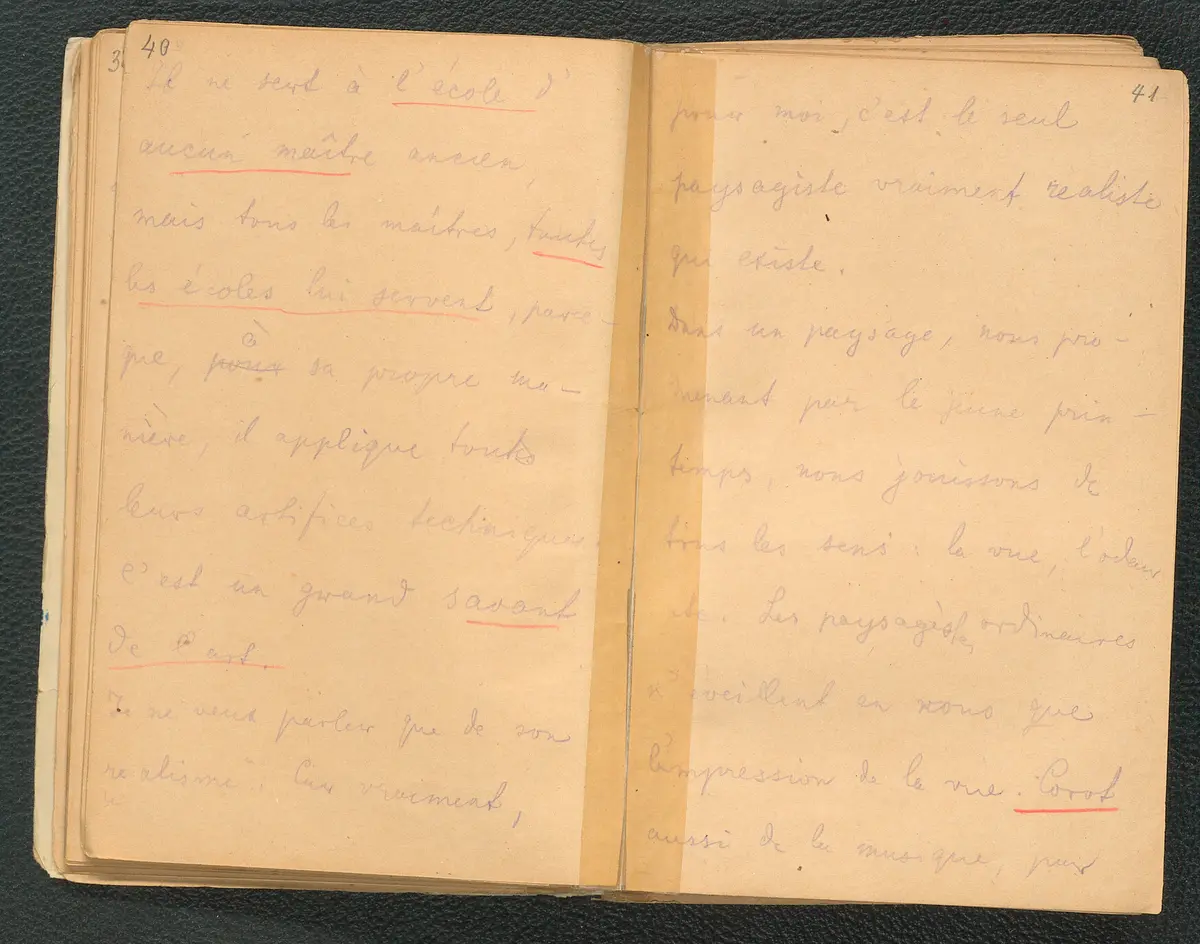 40
Il ne sert à l'école d'
aucun maître ancien,
mais tous les maîtres, toutes
les écoles lui servent, parce-
que, à pour sa propre ma-
nière, il applique toutes
leurs artifices techniques.
C'est un grand savant
de l'art.
Je ne veux parler que de son
realisme. Car vraiment,
41
pour moi, c'est le seul
paysagiste vraiment realiste
qui existe.
Dans un paysage, nous pro-
menant par le jeune prin-
temps, nous jouissons de
tous les sens: la vue, l'odeur
etc. Les paysagistes ordinaires
n'éveillent en nous que
l'impression de la vue. Corot
aussi de la musique, par